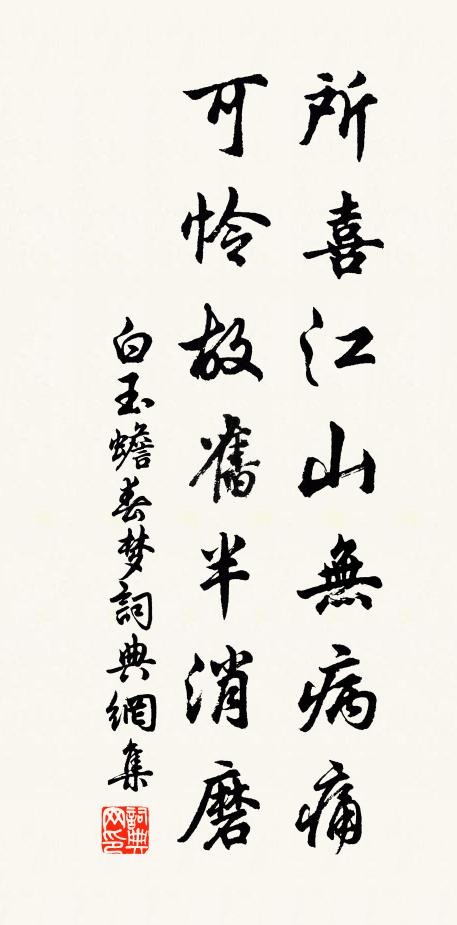 所喜江山無病痛
可怜故舊半消磨
白玉蟾春梦詞典網集
詞典網印